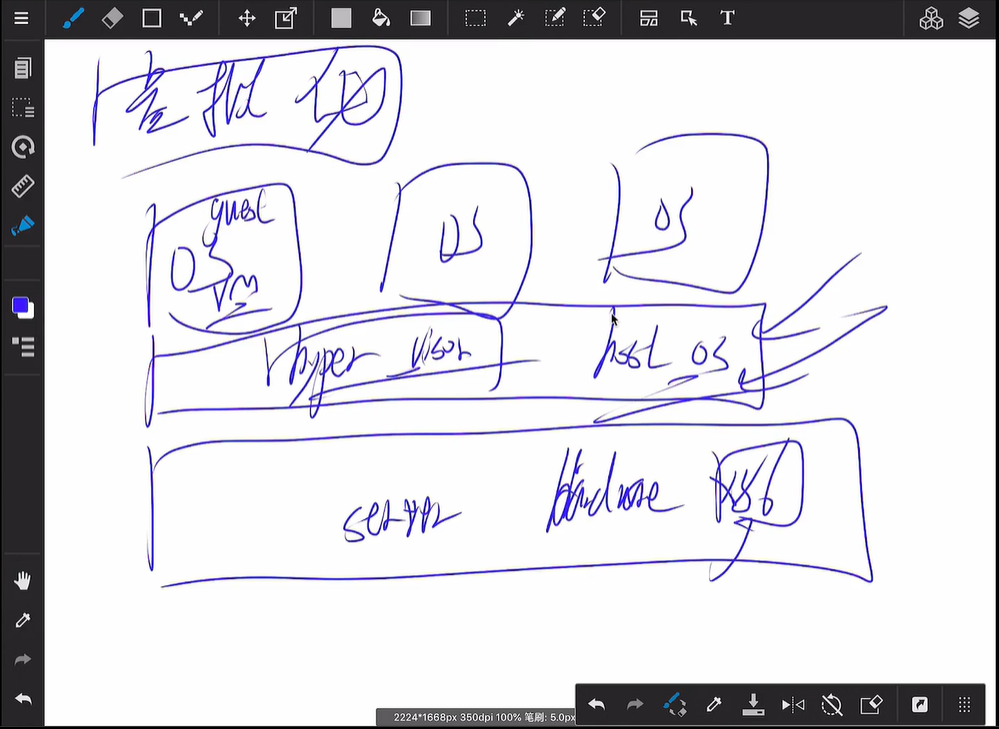 虚拟化
guest
OS
VM
OS
OS
hyper visor
host os
server
hardware x86
2224*1668px 350dpi 100% 笔刷: 5.0px
T